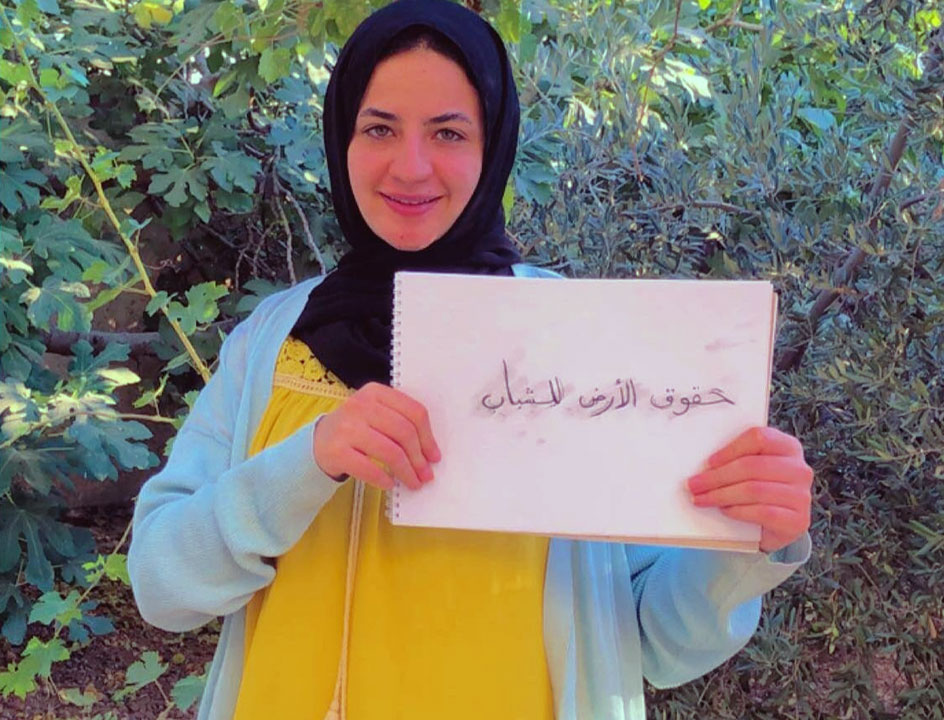 حقوق الأرض للشباب